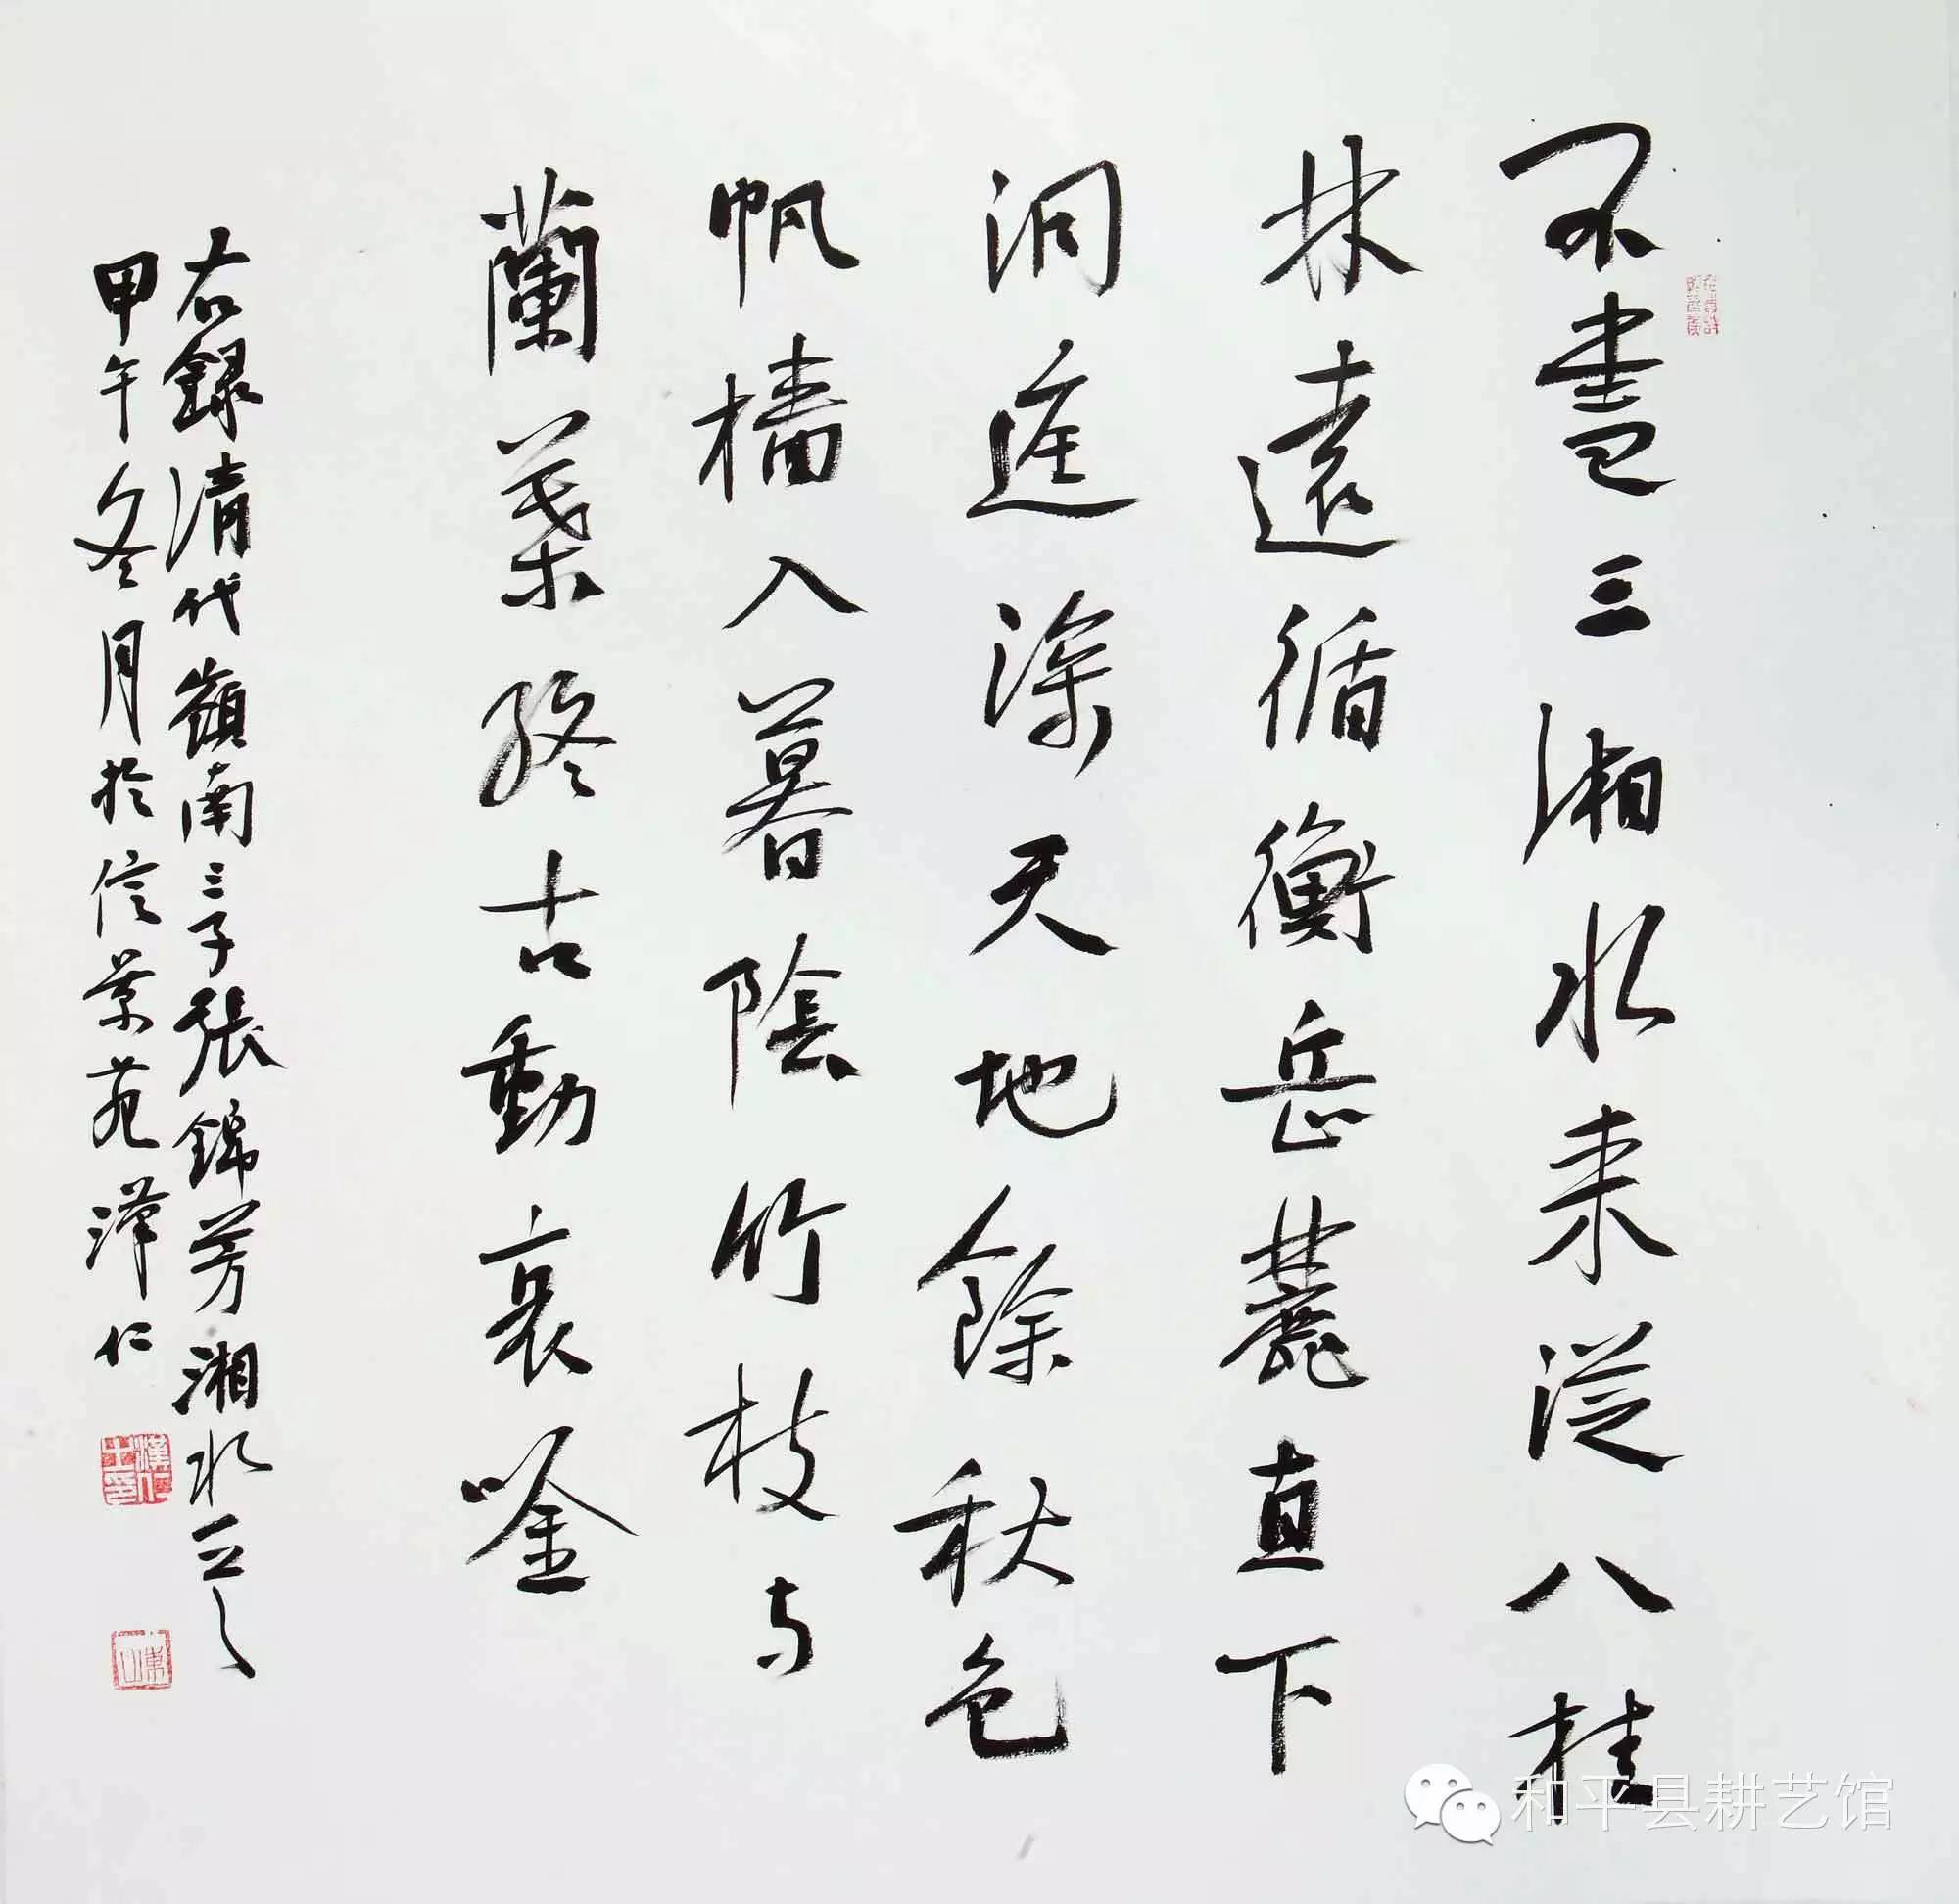 不盡三湘水来從八桂
林遠循衡岳麓直下
洞庭深天地餘秋色
帆檣入暮陰竹枝与
蘭葉終古動哀唫
右録清代嶺南三子張錦芳湘水一首
甲午冬月於信苑漢仁
和平县耕艺馆